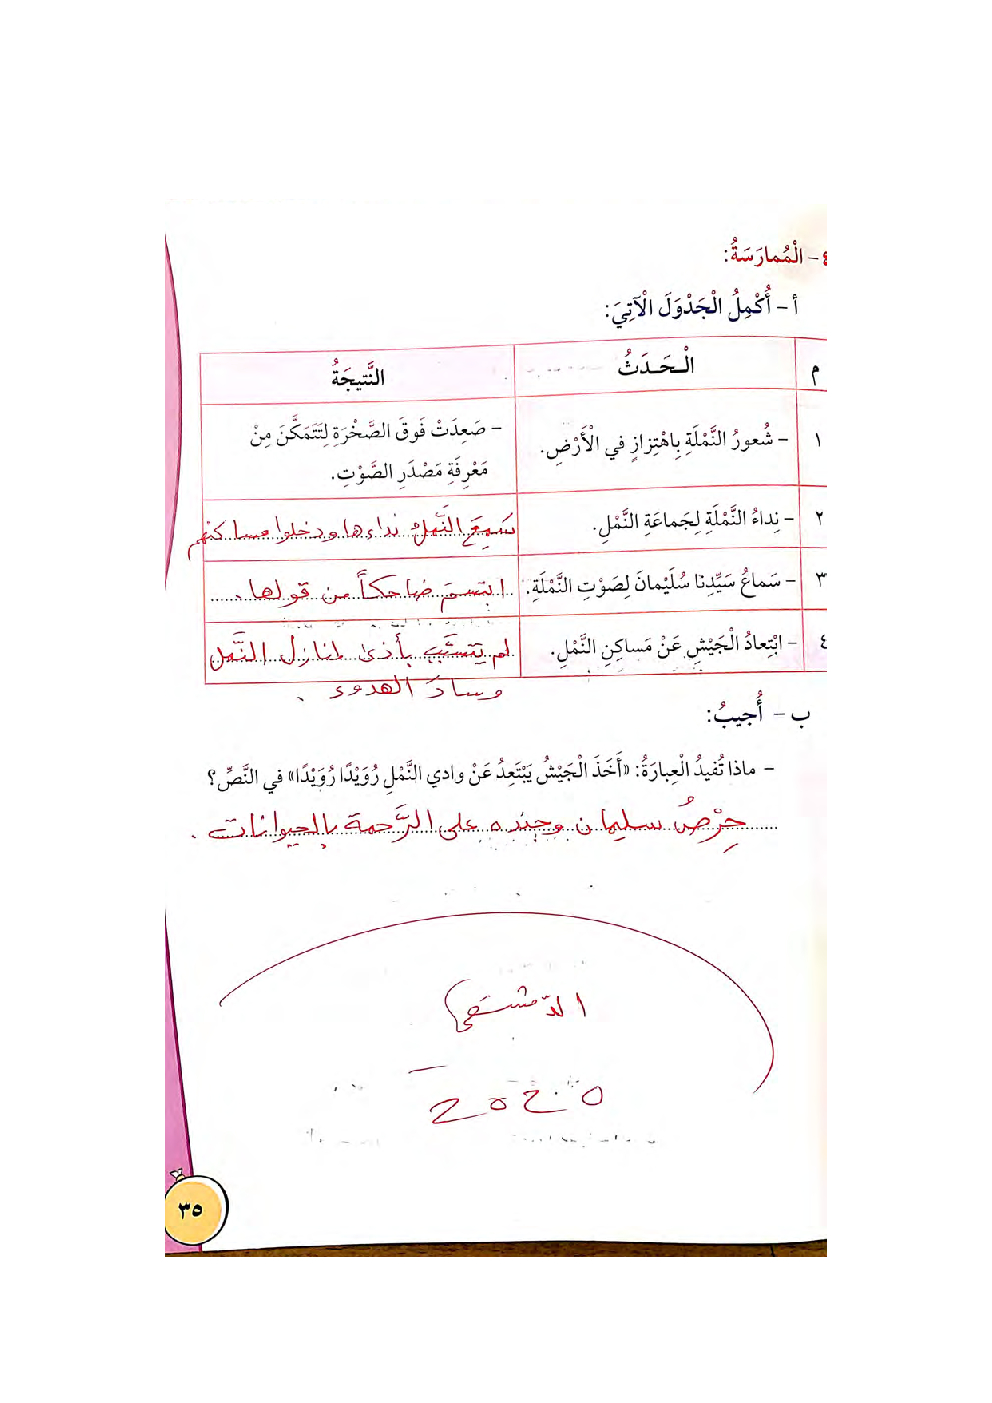 ٤- الْمُمارَسَةُ:
أ- أُكْمِلُ الْجَدْوَلَ الْآتِيَ:
م الْحَدَثُ النَّتيجَةُ
١ - شُعورُ النَّمْلَةِ بِاهْتِزازٍ في الْأَرْضِ. - صَعِدَتْ فَوْقَ الصَّخْرَةِ لِتَتَمَكَّنَ مِنْ
مَعْرِفَةِ مَصْدَرِ الصَّوْتِ.
٢ - نِداءُ النَّمْلَةِ لِجَماعَةِ النَّمْلِ. سَمِعَ النَّملُ نداءها ودخلوا مساكنهم
٣ - سَماعُ سَيِّدِنا سُلَيْمانَ لِصَوْتِ النَّمْلَةِ. ابتسمَ ضاحكاً من قولها.
٤ - ابْتِعادُ الْجَيْشِ عَنْ مَساكِنِ النَّمْلِ. لم يتسبَّب بأذى لمنازل النَّمل
وسادَ الهدوء.
ب - أُجيبُ:
- ماذا تُفيدُ الْعِبارَةُ: «أَخَذَ الْجَيْشُ يَبْتَعِدُ عَنْ وادي النَّمْلِ رُوَيْدًا رُوَيْدًا» في النَّصِّ؟
حِرْصُ سليمان وجنده على الرَّحمة بالحيوانات.
٣٥